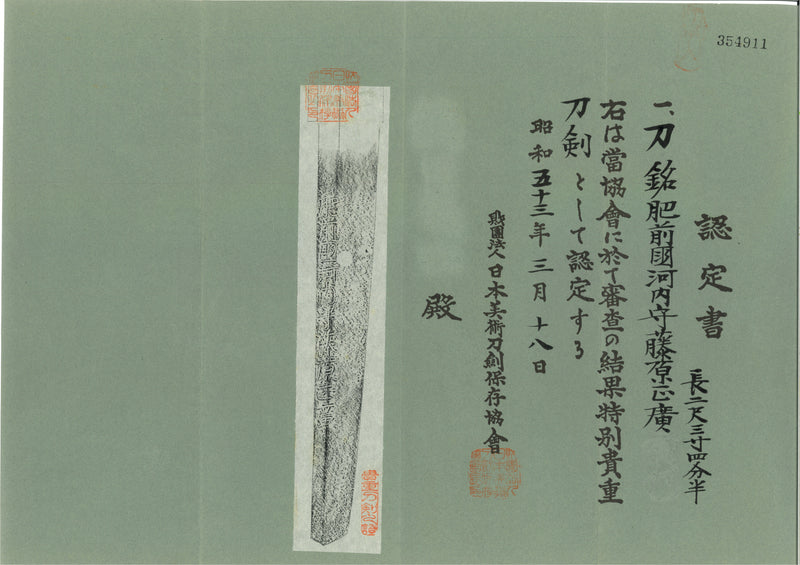 354911
認定書
一、刀 銘肥前國河内守藤原正廣
長二尺三寸四分半
右は當協會に於て審査の結果特別貴重
刀劍として認定する
昭和五十三年三月十八日
財團法人日本美術刀劍保存協會
殿
貴重刀剣之證